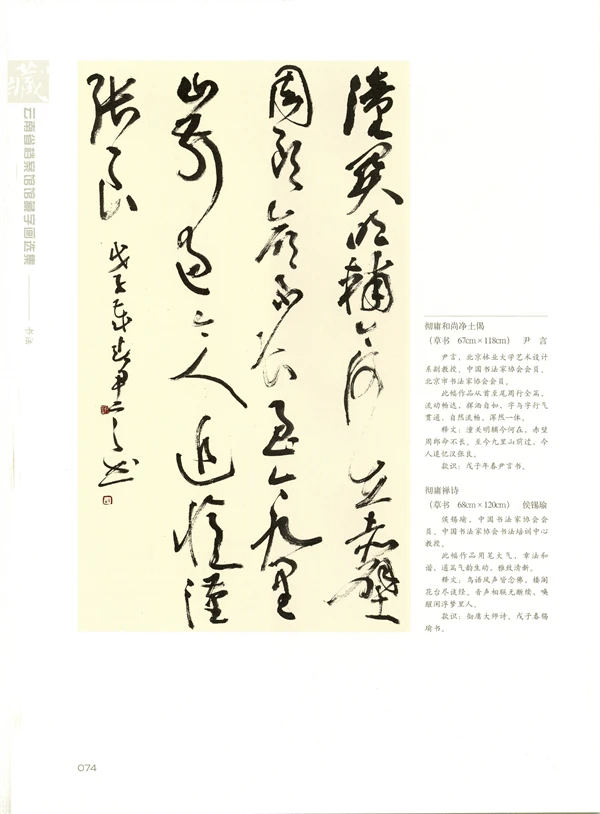 藏
云南省档案馆馆藏字画选集
书法
潼关明輔今何在赤壁
周郎命不长至今九里
山前过今人追憶漢
张良
戊子年春尹言书
彻庸和尚净土偈
（草书 67cm×118cm） 尹 言
尹言，北京林业大学艺术设计
系副教授，中国书法家协会会员，
北京市书法家协会会员。
此幅作品从首至尾周行全篇，
流动畅达，挥洒自如，字与字行气
贯通，自然流畅，浑然一体。
释文：潼关明辅今何在，赤望
周郎命不长。至今九里山前过，今
人追忆汉张良。
款识：戊子年春尹言书。
彻庸禅诗
（草书 68cm×120cm） 侯锡瑜
侯锡瑜，中国书法家协会会
员，中国书法家协会书法培训中心
教授。
此幅作品用笔大气，章法和
谐，通篇气韵生动，雅致清新。
释文：鸟语风声皆念佛，楼阁
花台尽谈经。音声相联无断续，唤
醒阎浮梦里人。
款识：彻庸大师诗。戊子春锡
瑜书。
074